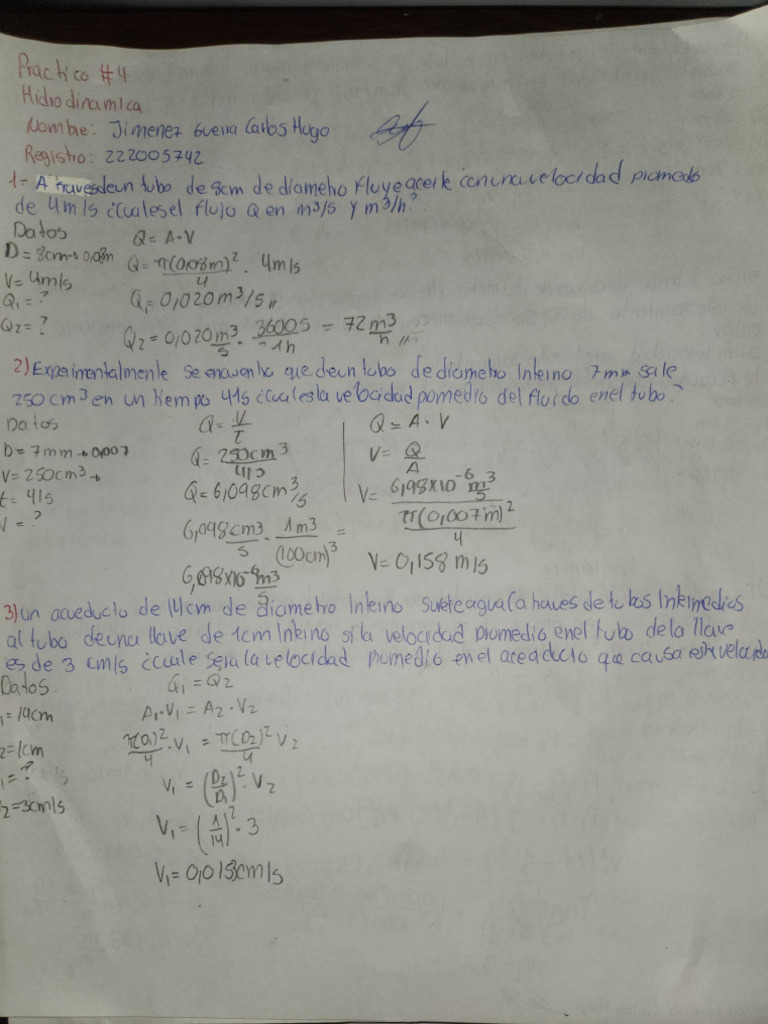 Practico #4
Hidrodinamica
Nombre: Jimenez Guerra Carlos Hugo
Registro: 222005742
1- A traves de un tubo de 8cm de diametro fluye aceite con una velocidad promedio
de 4m/s ¿cual es el flujo Q en m³/s y m³/h?
Datos
D = 8cm → 0,08m
V = 4m/s
Q₁ = ?
Q₂ = ?
Q = A · V
Q = π(0,08m)²/4 · 4m/s
Q₁ = 0,020 m³/s //
Q₂ = 0,020 m³/s · 3600s/1h = 72 m³/h //
2) Experimentalmente se encuentra que de un tubo de diametro Interno 7mm sale
250 cm³ en un tiempo 41s ¿cual es la velocidad pomedio del fluido en el tubo?
Datos
D = 7mm → 0,007
V = 250cm³ →
t = 41s
V = ?
Q = V/t
Q = 250cm³/41s
Q = 6,098cm³/s
6,098 cm³/s · 1m³/(100cm)³ =
6,098x10⁻⁶ m³/s
Q = A · V
V = Q/A
V = 6,98x10⁻⁶ m³/s / π(0,007m)²/4
V = 0,158 m/s
3) un acueducto de 14cm de diametro Interno surte agua (a traves de tubos Intermedios
al tubo de una llave de 1cm Interno si la velocidad promedio en el tubo de la llave
es de 3 cm/s ¿cual seja la velocidad promedio en el aceaducto que causa esta velocida
Datos
1 = 14cm
2 = 1cm
1 = ?
2 = 3cm/s
Q₁ = Q₂
A₁ · V₁ = A₂ · V₂
π(D₁)²/4 · V₁ = π(D₂)²/4 V₂
V₁ = (D₂/D₁)² · V₂
V₁ = (1/14)² · 3
V₁ = 0,015cm/s